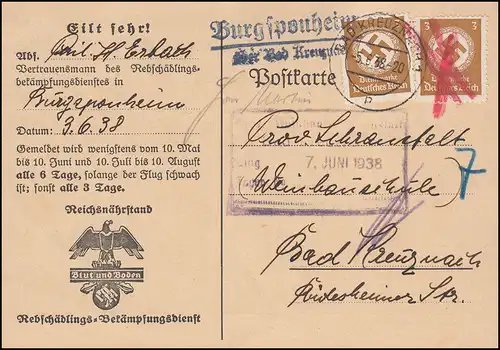 Eilt sehr!
Abs. Emil H. Erbach
Vertrauensmann des Rebschädlings-
bekämpfungsdienstes in
Burgsponheim
Datum: 3.6.38
Gemeldet wird wenigstens vom 10. Mai
bis 10. Juni und 10. Juli bis 10. August
alle 6 Tage, solange der Flug schwach
ist; sonst alle 3 Tage.
Reichsnährstand
Blut und Boden
Rebschädlings-Bekämpfungsdienst
Burgsponheim
über Bad Kreuznach
Postkarte
BAD KREUZNACH
b
3
3
Deutsches Reich
7. JUNI 1938
Prov. Lehranstalt
(Weinbauschule)
7
Bad Kreuznach
Rüdesheimer Str.